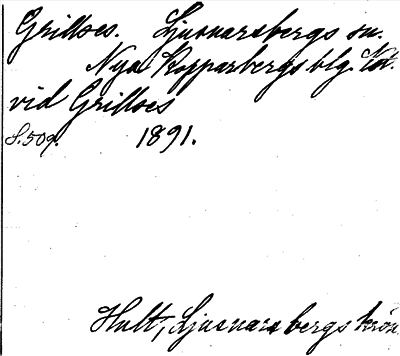 Grilloes. Ljusnarsbergs sn.
Nya Kopparbergs blg.
vid Grilloes
S. 509. 1891.
Hult, Ljusnarsbergs krön